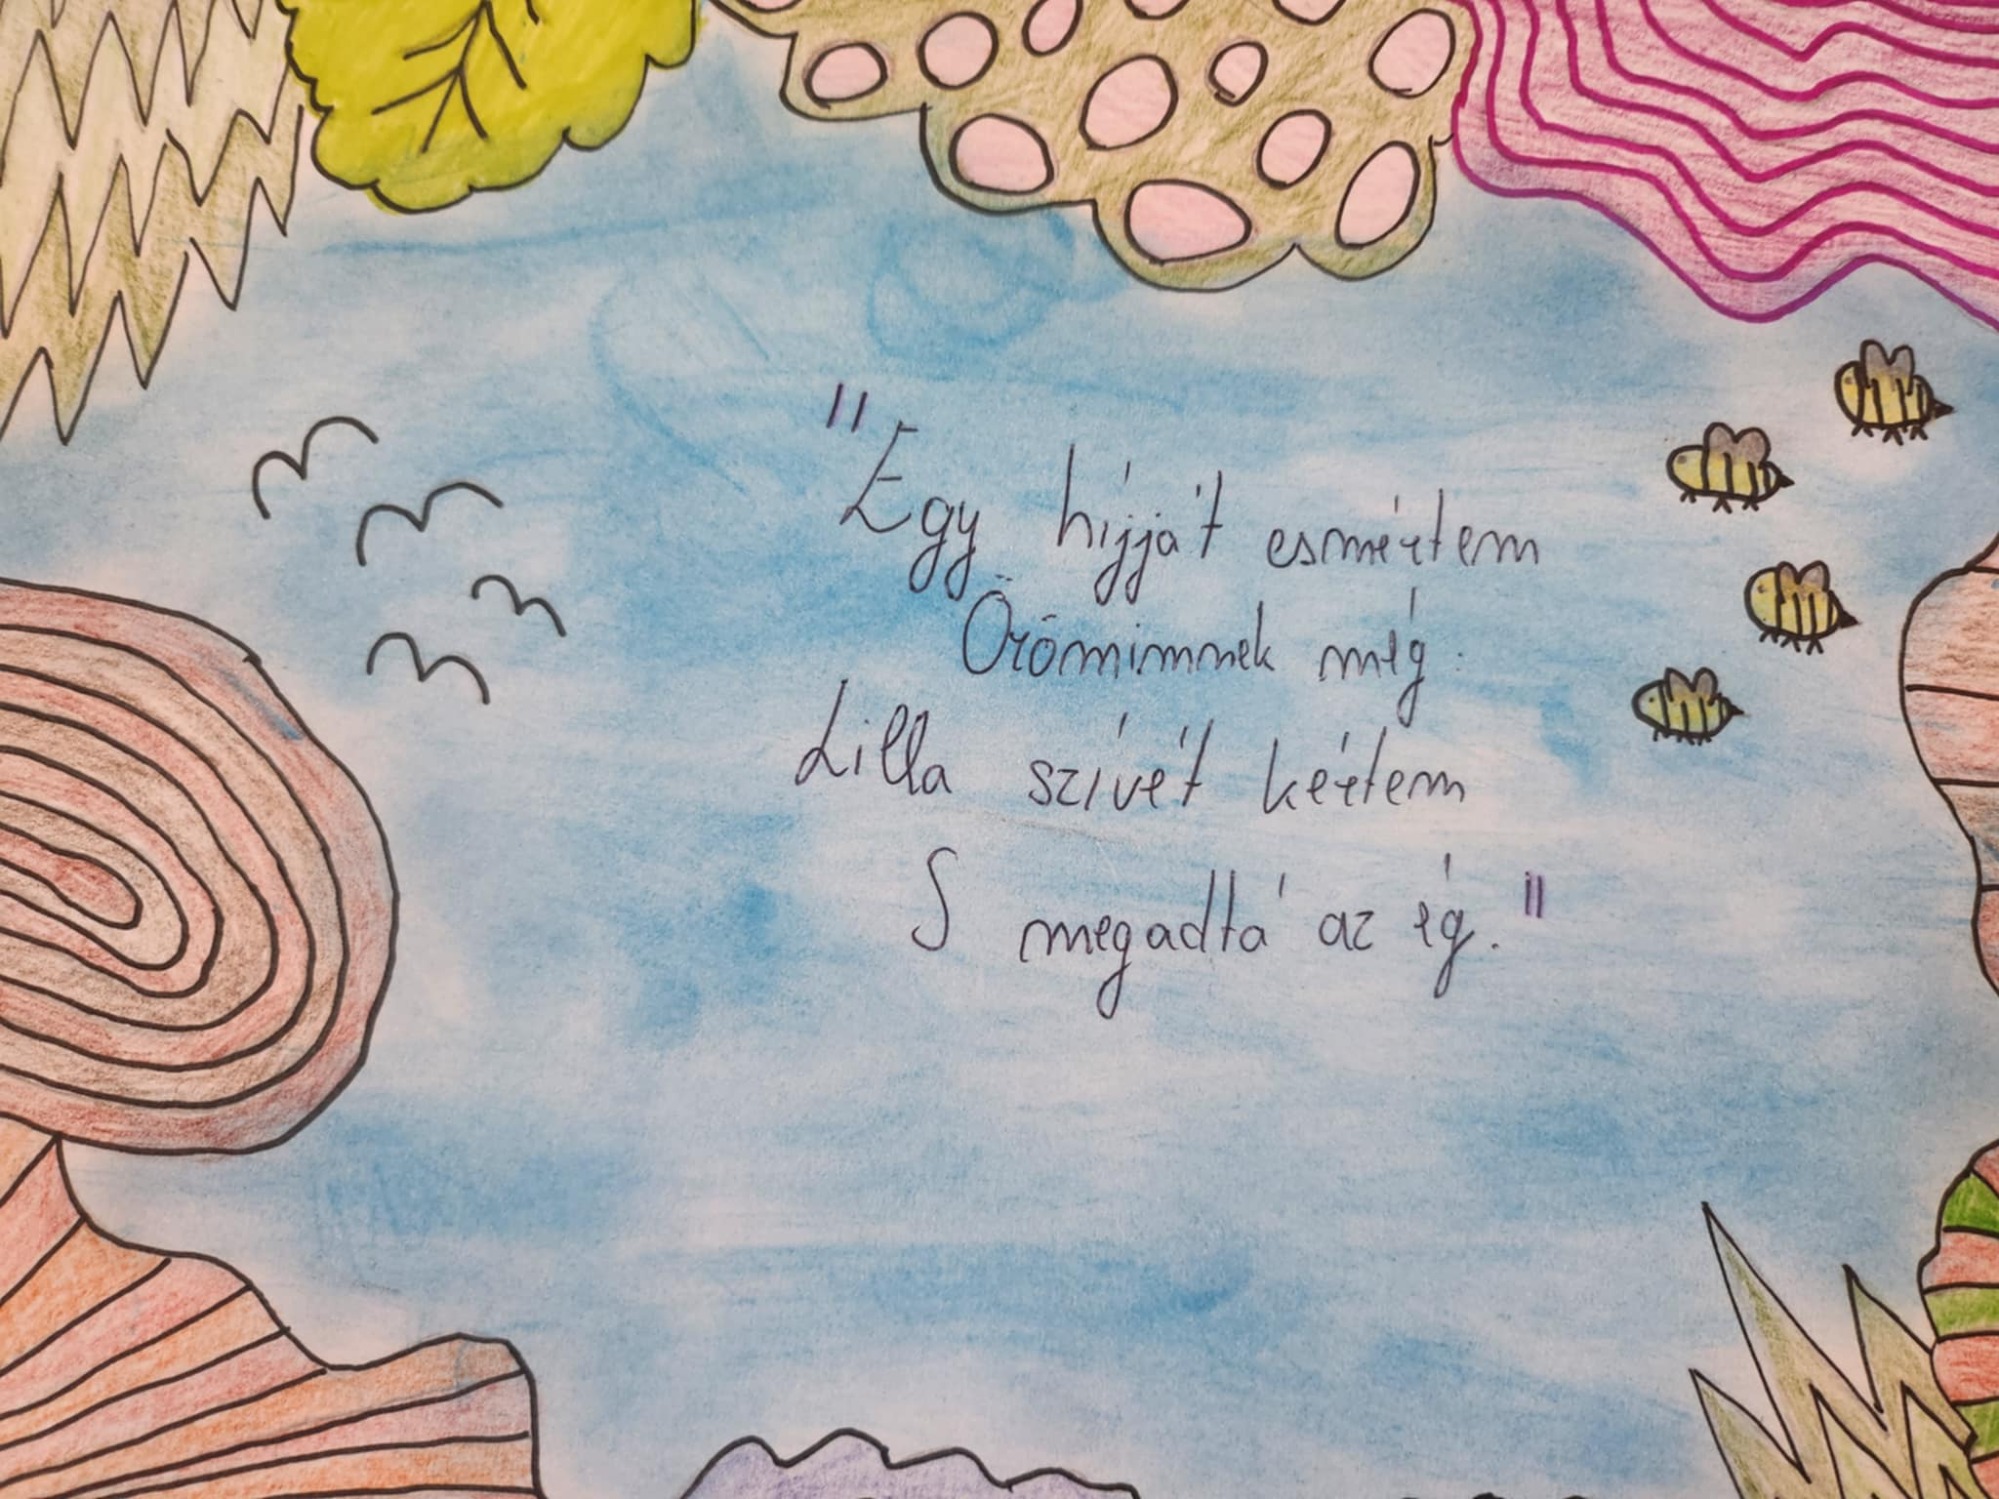 "Egy híjját esmértem
Örömimnek még:
Lilla szívét kértem
S megadtá az ég."